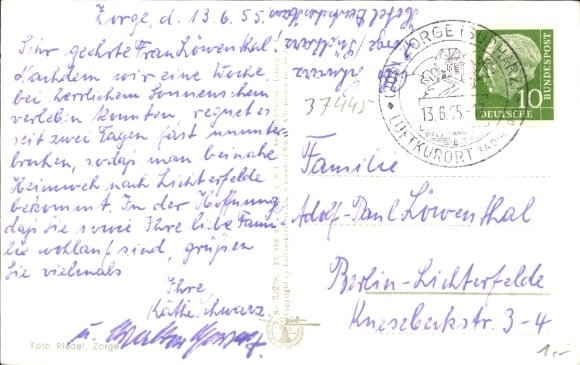 Zorge, d. 13.6.55.
Sehr geehrte Frau Löwenthal!
Nachdem wir eine Woche
bei herrlichem Sonnenschein
verlebin konnten, regnet es
seit zwei Tagen fast ununter-
brochen, sodaß man beinahe
Heimweh nach Lichterfelde
bekommt. In der Hoffnung
daß Sie sowie Ihre liebe Fami-
lie wohlauf sind, grüßen
Sie vielmals
Ihre
Käthe Schwarz.
u.
Foto Riedel, Zorge
Zorge / Südharz
37445
ZORGE (SÜDHARZ)
13.6.55
LUFTKURORT
10
DEUTSCHE
BUNDESPOST
Familie
Adolf-Paul Löwenthal
Berlin-Lichterfelde
Knesebeckstr. 3-4
1.-